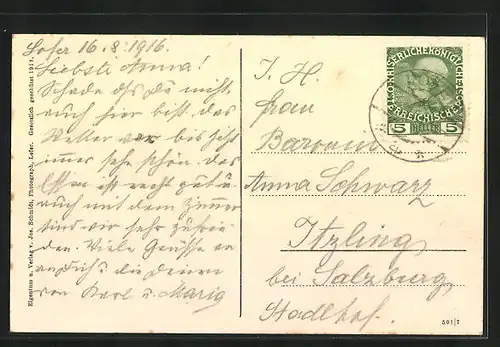 Lofer 16.8.1916.
Liebste Anna!
Schade dſs du nicht
auch hier bist. das
Wetter war bis jetzt
immer sehr schön. das
Essen ist recht gut u
auch mit dem Zimmer
sind wir sehr zufrie
den. Viele Grüsse an
dich u. die deinen
von Karl u. Marie
Eigentum u. Verlag v. Jos. Schmidt, Photograph, Lofer. Gesetzlich geschützt 1911.
KAISERLICHEKÖNIGLICHE
ÖSTERREICHISCHE
5 HELLER 5
I. H.
Frau
Anna Schwarz
Itzling
bei Salzburg
Stadlhof.
501/7